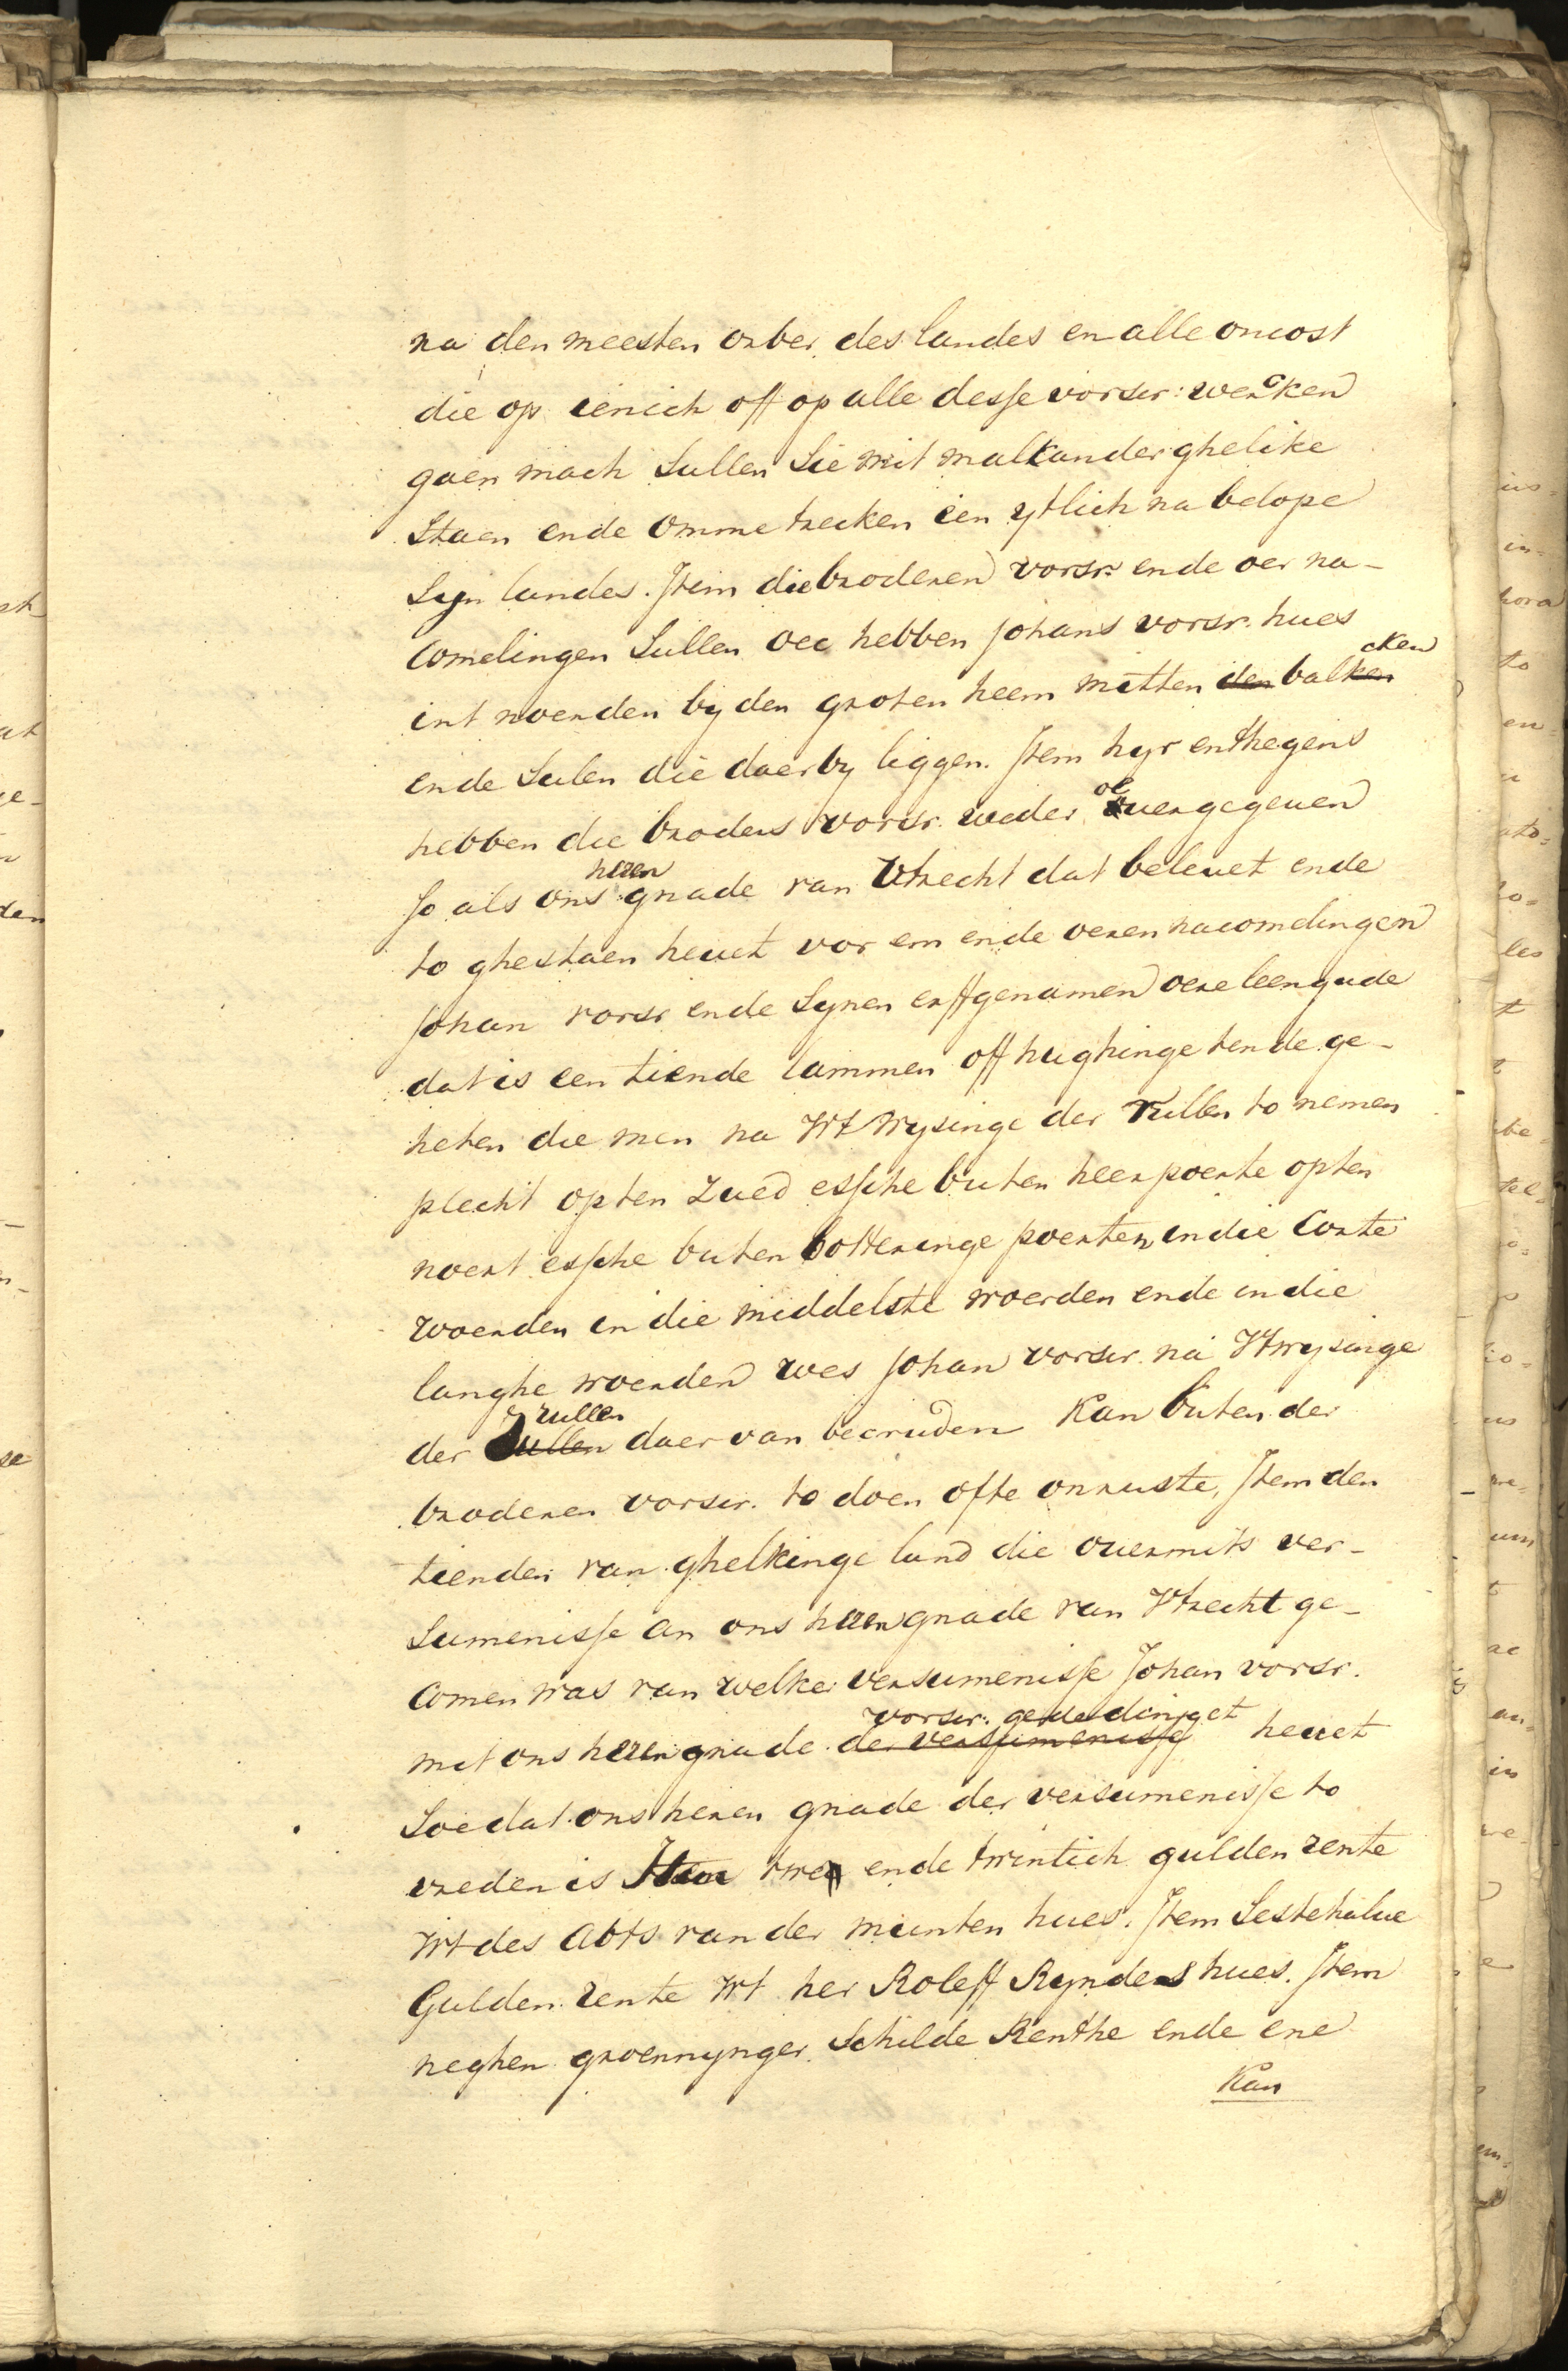 na den meesten orber des landes en alle oncost
die op ienich off op alle desse vorscr: wercken
gaen mach Sullen Sie mit malkander ghelike
Staen ende omme trecken een ytlich na belope
Syn landes. Item die broderen vorsr. ende oer na-
comelingen Sullen oec hebben Johans vorscr. hues
int noerden by den groten heem mitten balcken
ende Sulen die daer by liggen. Item hyr enthegens
hebben die broders vorscr. weder overgegeuen
So als ons heren gnade van Utrecht dat beleuet ende
to ghestaen heuet vor em ende oeren nacomelingen
Johan vorscr ende Synen erffgenamen oere leengude
dat is een tiende lammen off hughinge tende ge-
heten die men na Wtwysinge der rullen to nemen
plecht opten Zued essche buten heerpoerte opten
noert essche buten botteringe poerten in die Corte
woerden in die middelste woerden ende in die
langhe woerden wes Johan vorscr. na Wtwysinge
der rullen daer van becruden Kan buten der
broderen vorscr. to doen ofte onruste, Item den
tienden van ghelkinge land die ouermits ver-
Sumenisse an ons heren gnade van Vtrecht ge-
comen was van welker versumenisse Johan vorsr.
mit ons heren gnade der versumenisse vorscr: gededinget heuet
Soe dat ons heren gnade der versumenisse to
vreden is Item twe ende twintich gulden rente
Wt des abts van der munten hues. Item Sestehalue
Gulden rente Wt her Roleff Rynders hues. Item
neghen groennynger Schilde Renthe ende ene
Kan